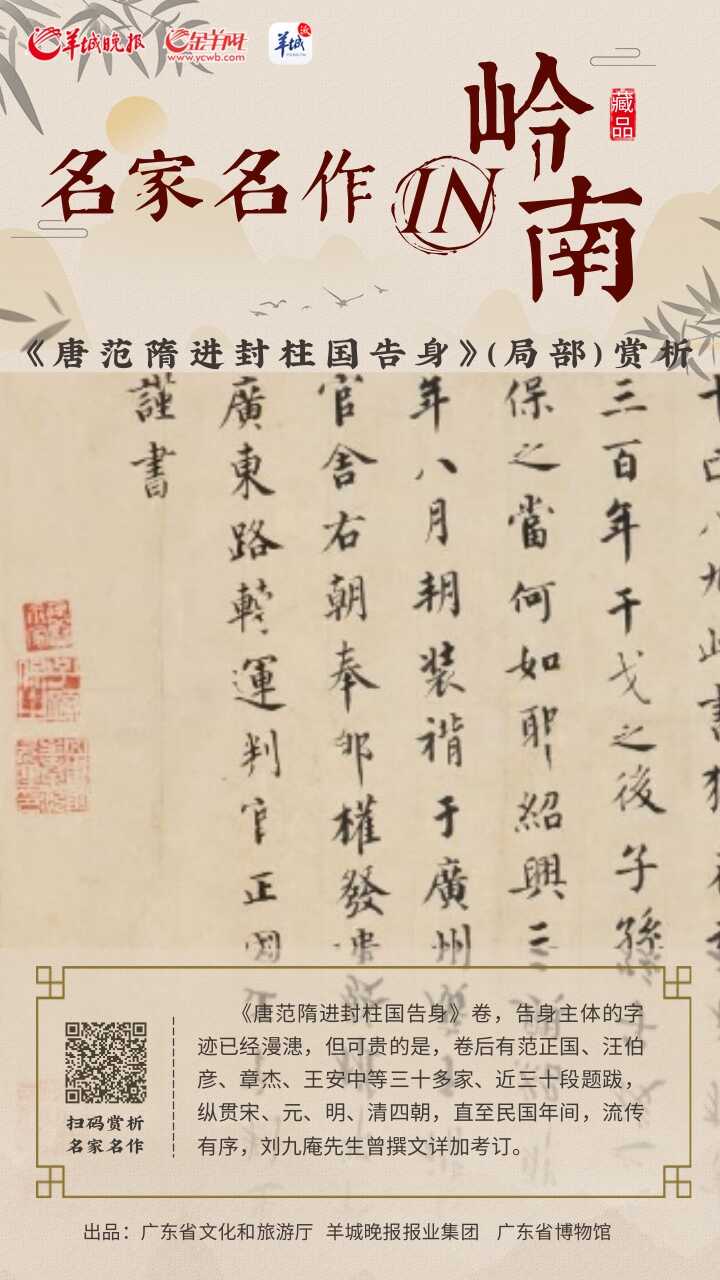 羊城晚报 金羊网 羊城
www.ycwb.com
名家名作 IN 岭南
藏品
《唐范隋进封柱国告身》(局部)赏析
三百年干戈之後子孫
保之當何如耶紹興三
年八月朝装褙于廣州
官舍右朝奉郎權發
廣東路轉運判官正國
謹書
《唐范隋进封柱国告身》卷，告身主体的字
迹已经漫漶，但可贵的是，卷后有范正国、汪伯
彦、章杰、王安中等三十多家、近三十段题跋，
纵贯宋、元、明、清四朝，直至民国年间，流传
有序，刘九庵先生曾撰文详加考订。
扫码赏析
名家名作
出品：广东省文化和旅游厅 羊城晚报报业集团 广东省博物馆